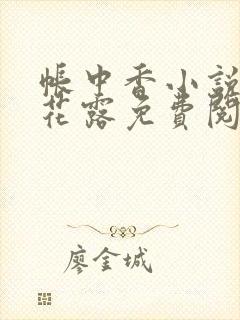 帳中香小說
花露免費閱
廖金城